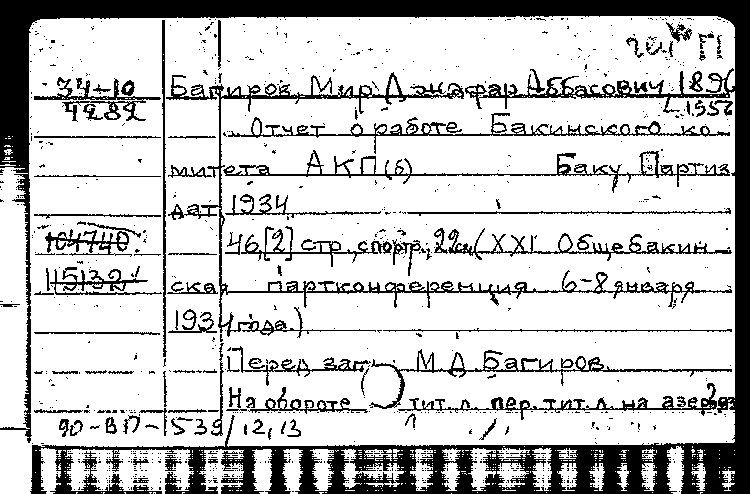 34-10 Багиров, Мир Джафар Аббасович, 1896
4282 1956
Отчет о работе Бакинского ко-
митета АКП(б) Баку, Партиз-
дат, 1934
104740 46,[2] стр., с портр., 22см (XXI Общебакин-
115132 ская партконференция. 6-8 января
1934 года.)
Перед заг.: М.Д. Багиров.
На обороте тит. л. пер. тит. л. на азерб.
90-ВП-1539/12,13